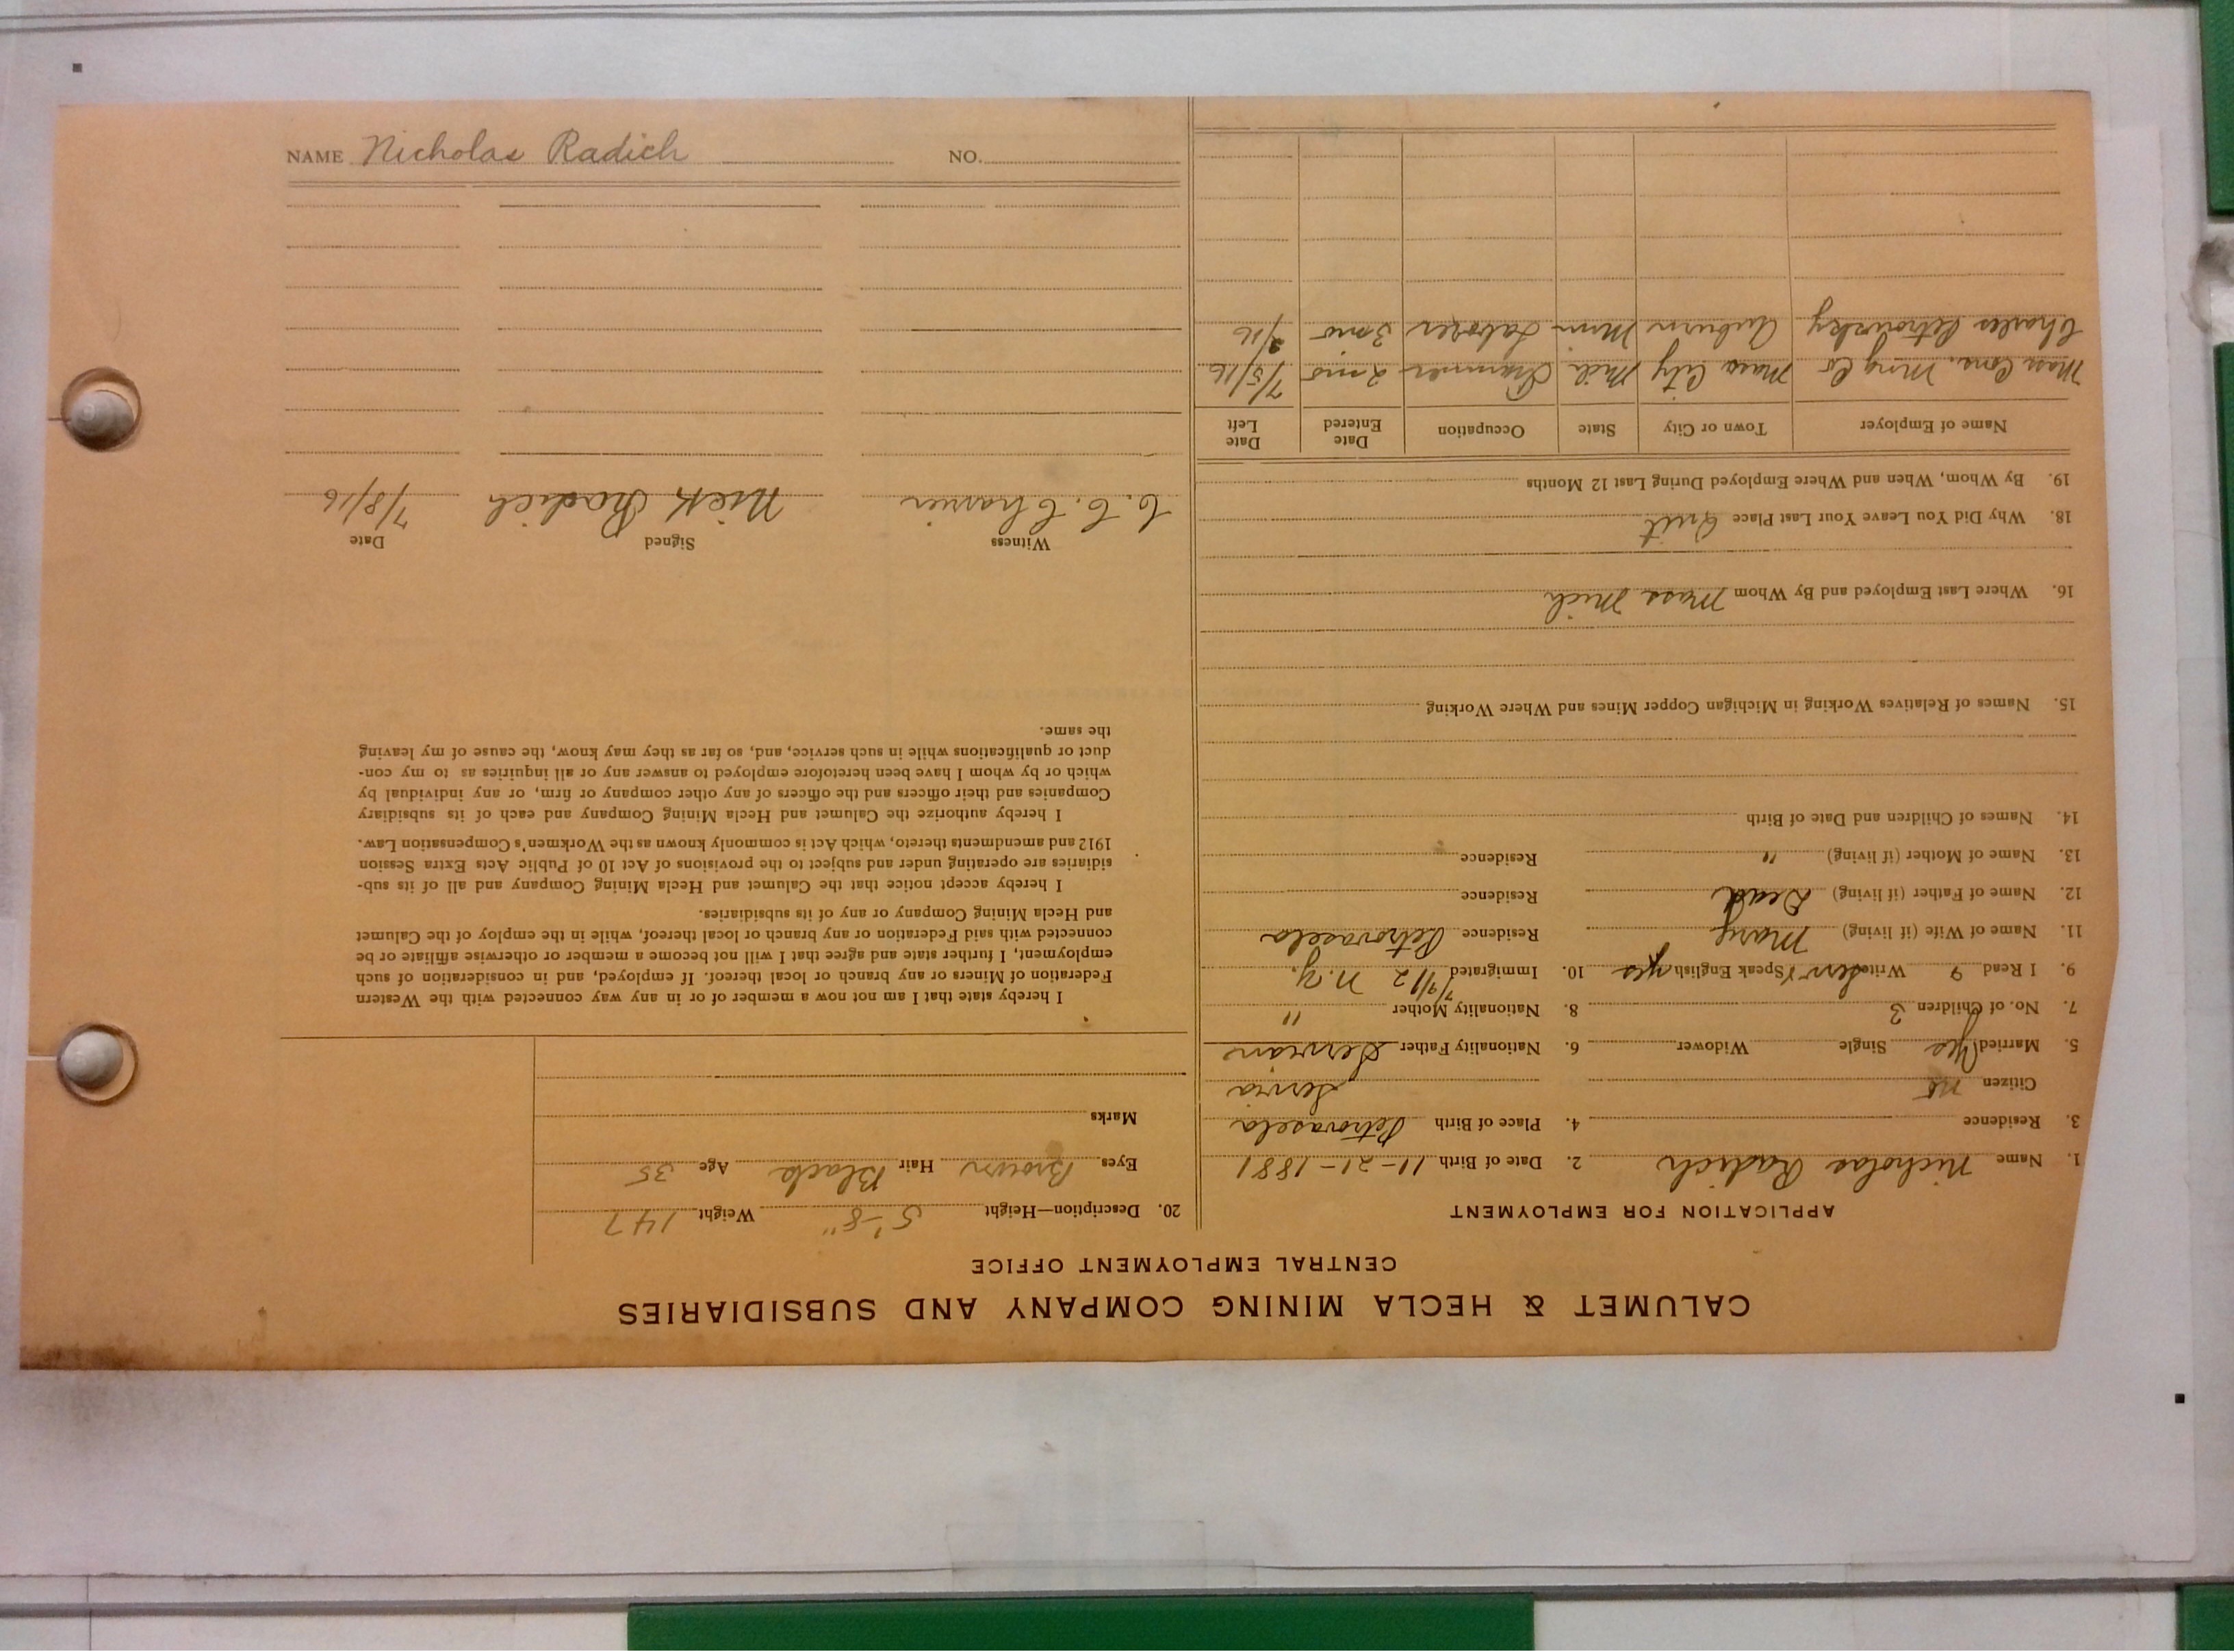 CALUMET & HECLA MINING COMPANY AND SUBSIDIARIES
CENTRAL EMPLOYMENT OFFICE
APPLICATION FOR EMPLOYMENT
1. Name Nicholas Radich 2. Date of Birth 11-21-1881
3. Residence 4. Place of Birth Petrovasela
Citizen no Servia
5. Married Yes Single Widower 6. Nationality Father Servian
7. No. of Children 3 8. Nationality Mother "
9. I Read Write Serv Speak English yes 10. Immigrated 1912 N.Y.
11. Name of Wife (if living) Mary Residence Petrovasela
12. Name of Father (if living) Dead Residence
13. Name of Mother (if living) " Residence
14. Names of Children and Date of Birth
15. Names of Relatives Working in Michigan Copper Mines and Where Working
16. Where Last Employed and By Whom Mass Mich
18. Why Did You Leave Your Last Place Quit
19. By Whom, When and Where Employed During Last 12 Months
Name of Employer Town or City State Occupation Date Entered Date Left
Mass Cons. Ming Co Mass City Mich Trammer 2 mo 7/5/16
Charles Petrowsky Auburn Minn Laborer 3 mo /16
20. Description—Height 5'-8" Weight 147
Eyes Brown Hair Black Age 35
Marks
I hereby state that I am not now a member of or in any way connected with the Western
Federation of Miners or any branch or local thereof. If employed, and in consideration of such
employment, I further state and agree that I will not become a member or otherwise affiliate or be
connected with said Federation or any branch or local thereof, while in the employ of the Calumet
and Hecla Mining Company or any of its subsidiaries.
I hereby accept notice that the Calumet and Hecla Mining Company and all of its sub-
sidiaries are operating under and subject to the provisions of Act 10 of Public Acts Extra Session
1912 and amendments thereto, which Act is commonly known as the Workmen's Compensation Law.
I hereby authorize the Calumet and Hecla Mining Company and each of its subsidiary
Companies and their officers and the officers of any other company or firm, or any individual by
which or by whom I have been heretofore employed to answer any or all inquiries as to my con-
duct or qualifications while in such service, and, so far as they may know, the cause of my leaving
the same.
Witness Signed Date
C. C. Nick Radich 7/8/16
NAME Nicholas Radich NO.